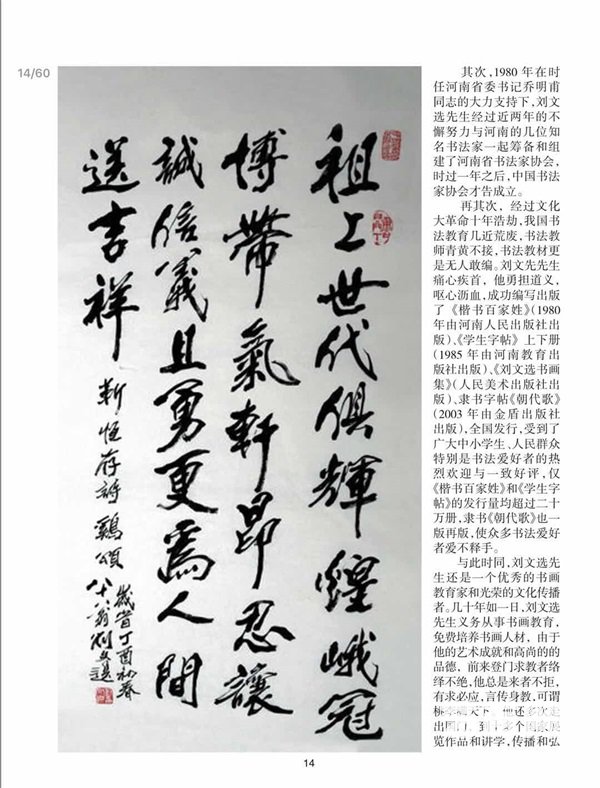 14/60
祖上世代俱輝煌峨冠
博帶氣軒昂忍讓
誠信義且勇更爲人間
送吉祥
靳恒存詩鷄頌
歲首丁酉初春
八十八翁刘文選
其次，1980 年在时
任河南省委书记乔明甫
同志的大力支持下，刘文
选先生经过近两年的不
懈努力与河南的几位知
名书法家一起筹备和组
建了河南省书法家协会，
时过一年之后，中国书法
家协会才告成立。
再其次，经过文化
大革命十年浩劫，我国书
法教育几近荒废，书法教
师青黄不接，书法教材更
是无人敢编。刘文先先生
痛心疾首，他勇担道义，
呕心沥血，成功编写出版
了《楷书百家姓》(1980
年由河南人民出版社出
版)、《学生字帖》上下册
(1985 年由河南教育出
版社出版)、《刘文选书画
集》(人民美术出版社出
版)、隶书字帖《朝代歌》
(2003 年由金盾出版社
出版)，全国发行，受到了
广大中小学生、人民群众
特别是书法爱好者的热
烈欢迎与一致好评，仅
《楷书百家姓》和《学生字
帖》的发行量均超过二十
万册，隶书《朝代歌》也一
版再版，使众多书法爱好
者爱不释手。
与此同时，刘文选先
生还是一个优秀的书画
教育家和光荣的文化传播
者。几十年如一日，刘文选
先生义务从事书画教育，
免费培养书画人材，由于
他的艺术成就和高尚的的
品德，前来登门求教者络
绎不绝，他总是来者不拒，
有求必应，言传身教，可谓
桃李满天下。他还多次走
出国门，到十多个国家展
览作品和讲学，传播和弘
14